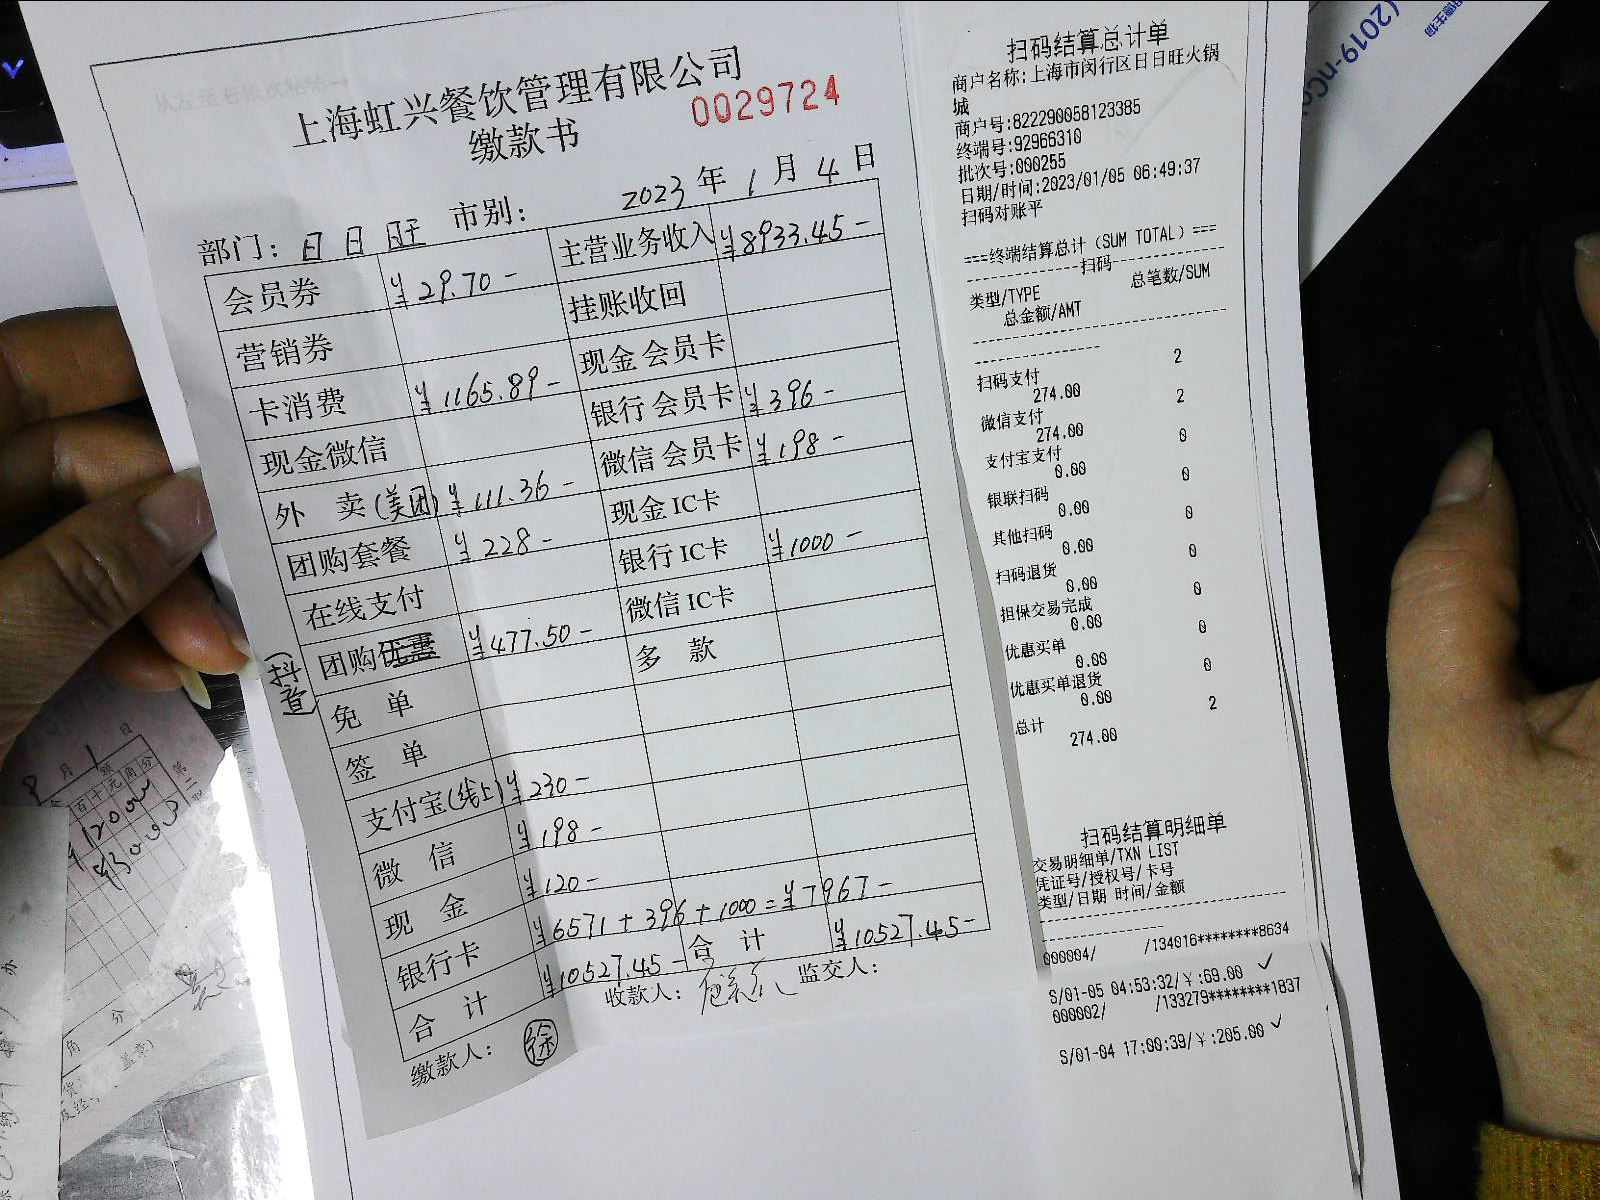 上海虹兴餐饮管理有限公司
缴款书
0029724
部门： 日日旺 市别： 2023年1月4日
会员券 ¥29.70- 主营业务收入 ¥8933.45-
营销券 挂账收回
卡消费 ¥1165.89- 现金会员卡
现金微信 银行会员卡 ¥396-
外 卖(美团) ¥111.36- 微信会员卡 ¥198-
团购套餐 ¥228- 现金IC卡
在线支付 银行IC卡 ¥1000-
团购 (抖音) ¥477.50- 微信IC卡
免 单 多 款
签 单
支付宝(线上) ¥230-
微 信 ¥198-
现 金 ¥120-
银行卡 ¥6571+396+1000=¥7967-
合 计 ¥10527.45- 合 计 ¥10527.45-
缴款人： 徐 收款人： 监交人：
扫码结算总计单
商户名称:上海市闵行区日日旺火锅
城
商户号:822290058123385
终端号:92966310
批次号:000255
日期/时间:2023/01/05 06:49:37
扫码对账平
===终端结算总计（SUM TOTAL）===
---------扫码---------
类型/TYPE 总笔数/SUM
总金额/AMT
扫码支付 2
274.00
微信支付 2
274.00
支付宝支付 0
0.00
银联扫码 0
0.00
其他扫码 0
0.00
扫码退货 0
0.00
担保交易完成 0
0.00
优惠买单 0
0.00
优惠买单退货 0
0.00
总计 2
274.00
扫码结算明细单
交易明细单/TXN LIST
凭证号/授权号/卡号
类型/日期 时间/金额
000004/ /134016********8634
S/01-05 04:53:32/￥:69.00 ✓
000002/ /133279********1837
S/01-04 17:00:39/￥:205.00 ✓
(2019-nCo
月 1 日
百十元角分
第二
角 分
盖章)